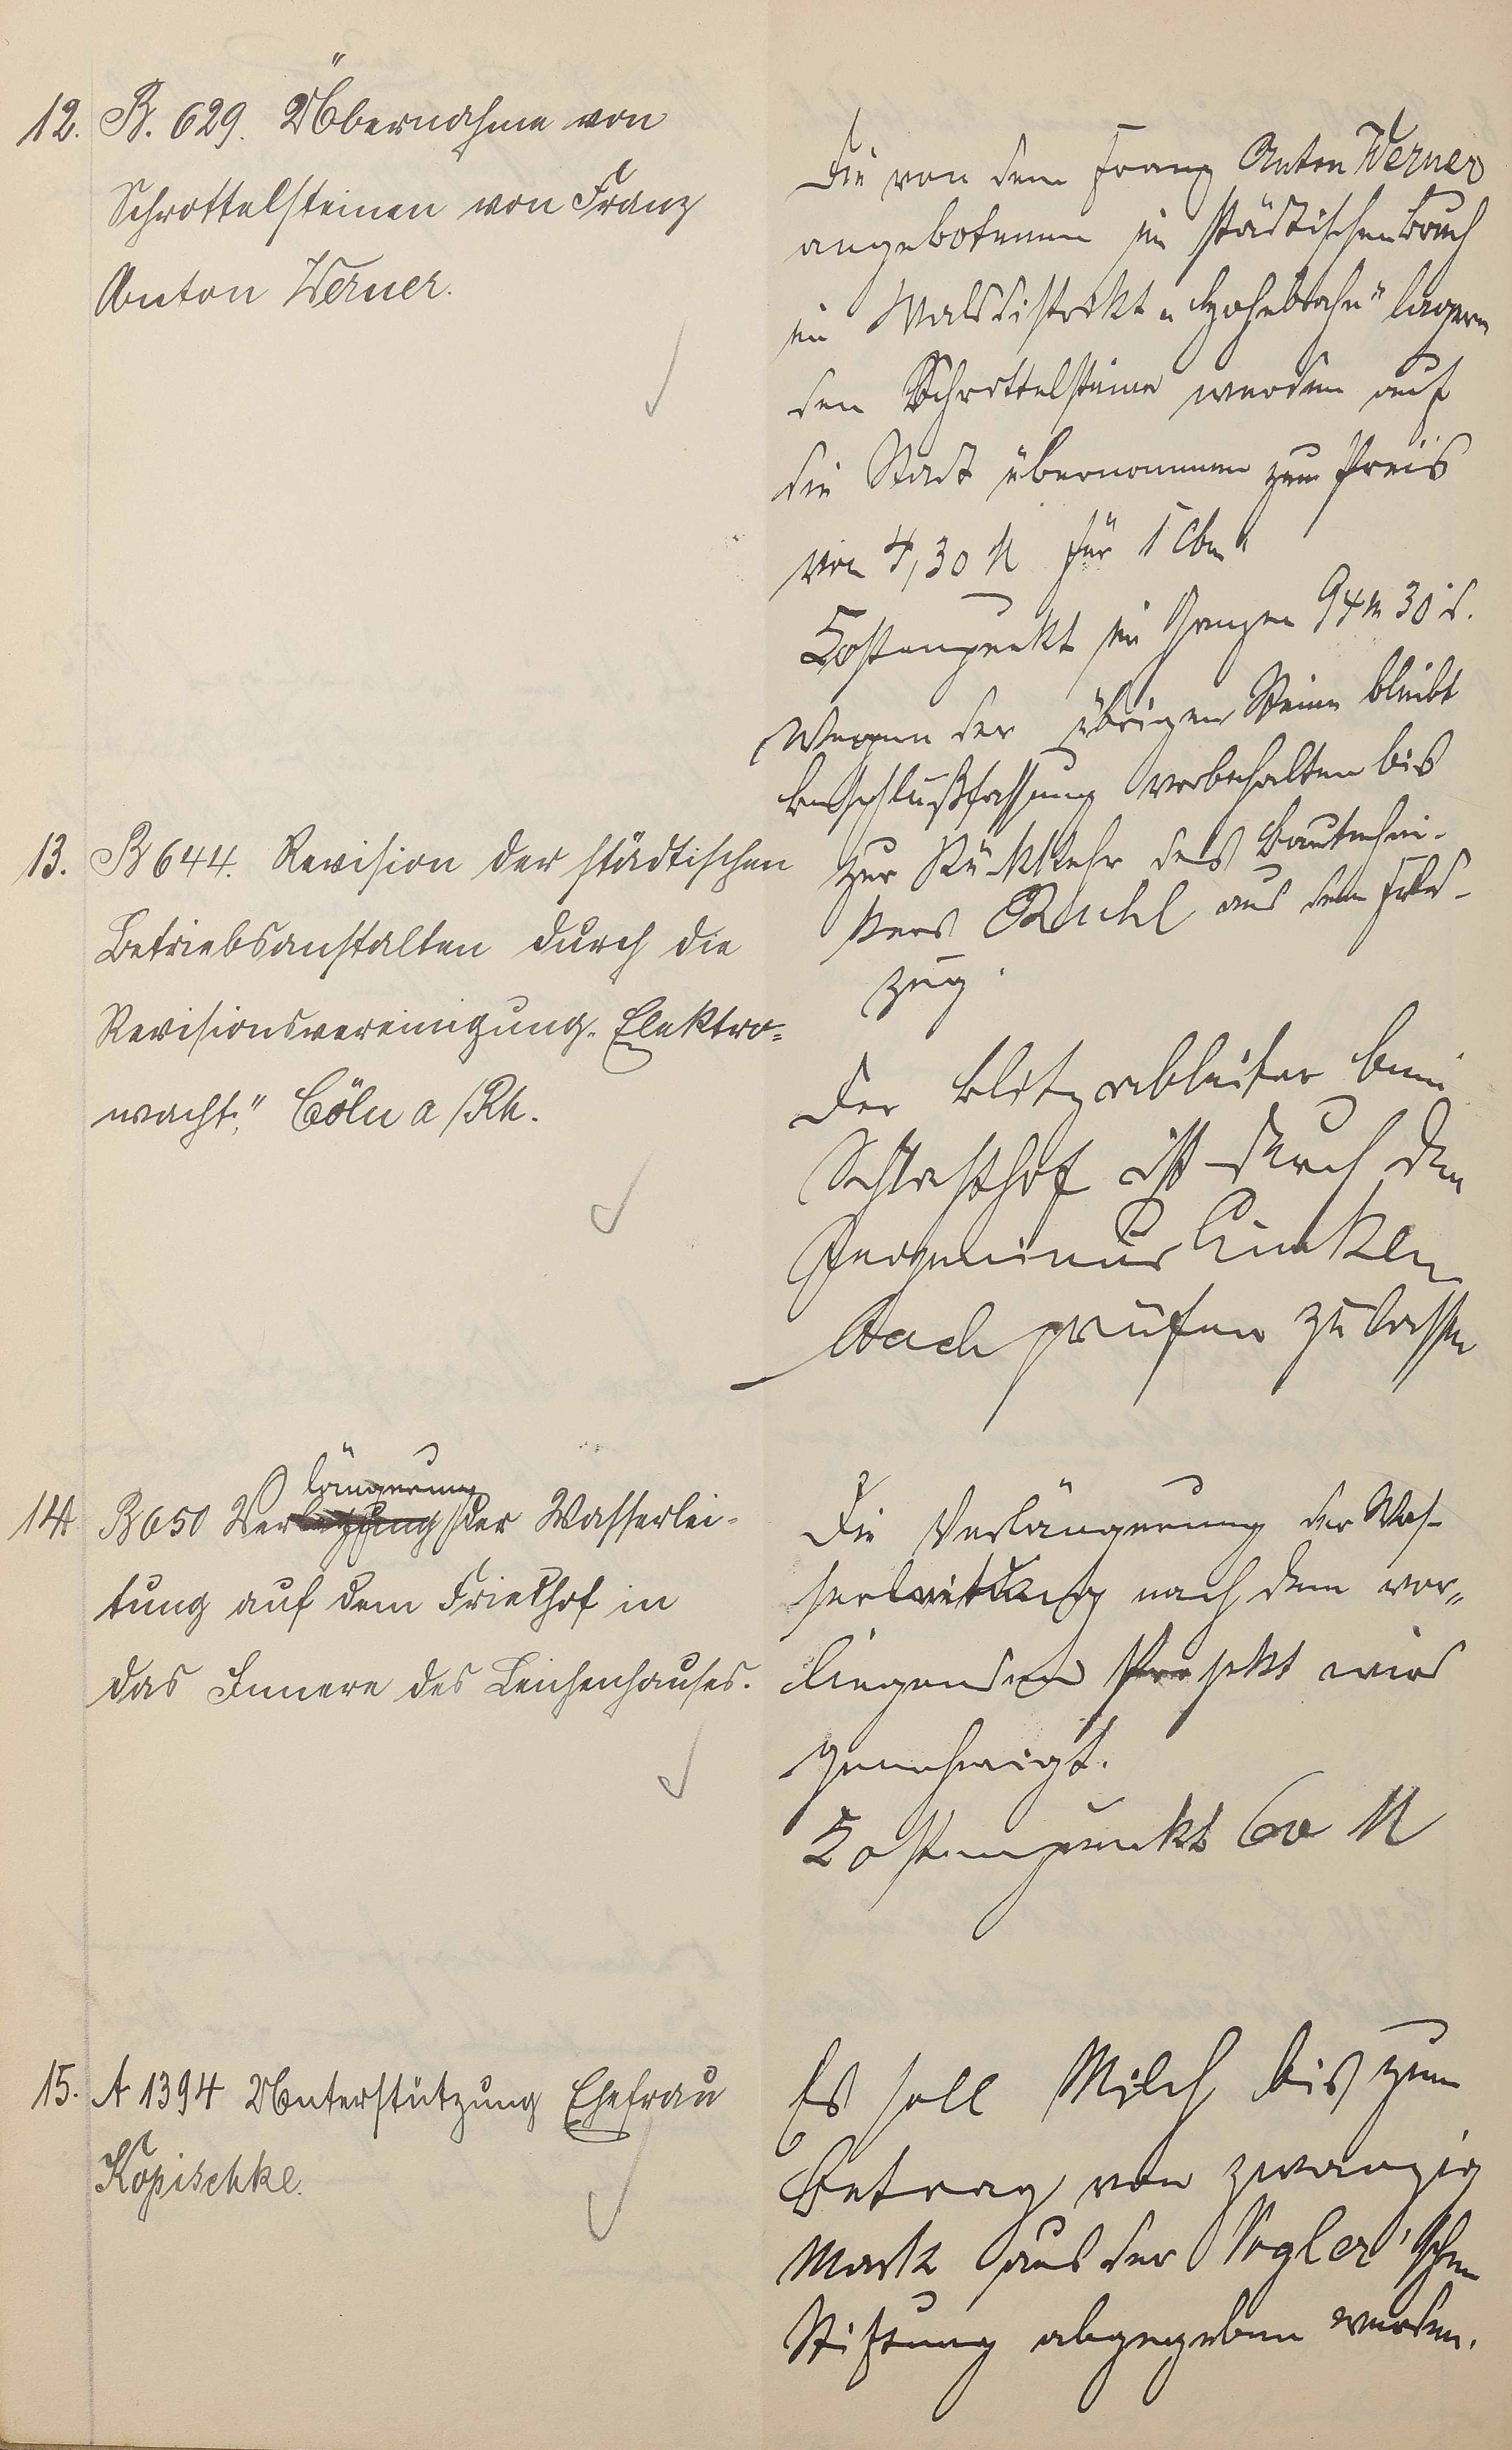 12. B. 629. Übernahme von
Schrottelsteinen von Franz
Anton Werner.
Die von dem Franz Anton Werner
angebotenen im städtischen Bruch
im Walddistrikt „Hohebahn" lagern
den Schrottelsteine werden auf
die Stadt übernommen zum Preis
von 4,30 M für 1 cbm.
Kostenpunkt im Ganzen 94 M 30 d.
Wegen der übrigen Steine bleibt
Beschlußfassung vorbehalten bis
zur Rückkehr des Bautechni-
kers Ruckel aus dem Feld-
zug.
13. B 644. Revision der städtischen
Betriebsanstalten durch die
Revisionsvereinigung „Elektro-
wacht," Cöln a/Rh.
Der Blitzableiter beim
Schlachthof ist durch den
nach prüfen zu lassen
14 B 650 Verlängerung der Wasserlei-
tung auf dem Friedhof in
das Innere des Leichenhauses.
Die Verlängerung der Was-
serleitung nach dem vor-
liegenden Projekt wird
genehmigt.
Kostenpunkt 60 M
15. A 1394 Unterstützung Ehefrau
Kopischke.
Es soll Milch bis zum
Betrag von zwanzig
Mark aus der Vogler'schen
Stiftung abgegeben werden.